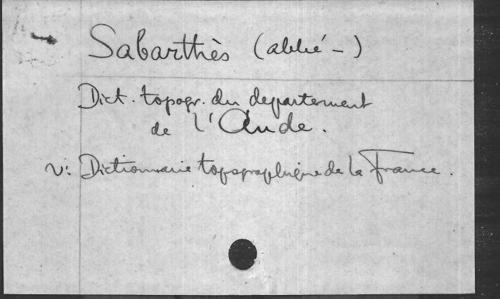 Sabarthès (abbé -)
Dict. topogr. du département
de l'Aude.
V: Dictionnaire topographique de la France.